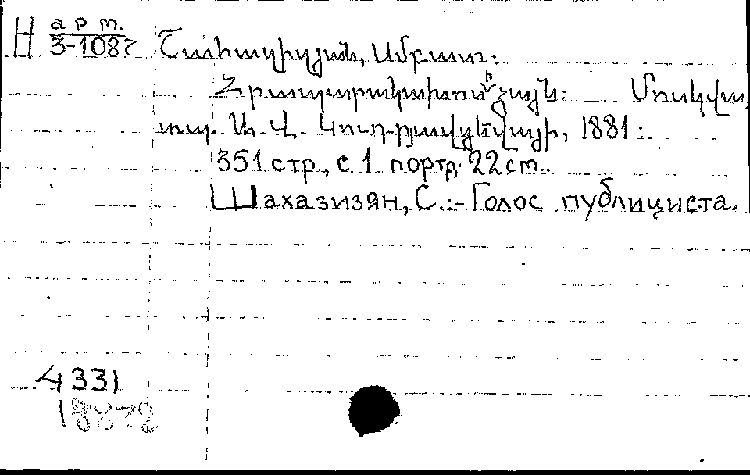 Н арт. 3-1087 Շահազիզյան, Սմբատ:
Հրապարակախօսի ձայն: Մոսկվա,
տպ. 1881:
351 стр., с 1 портр. 22 cm.
Шахазизян, С.:- Голос публициста.
4331
18872